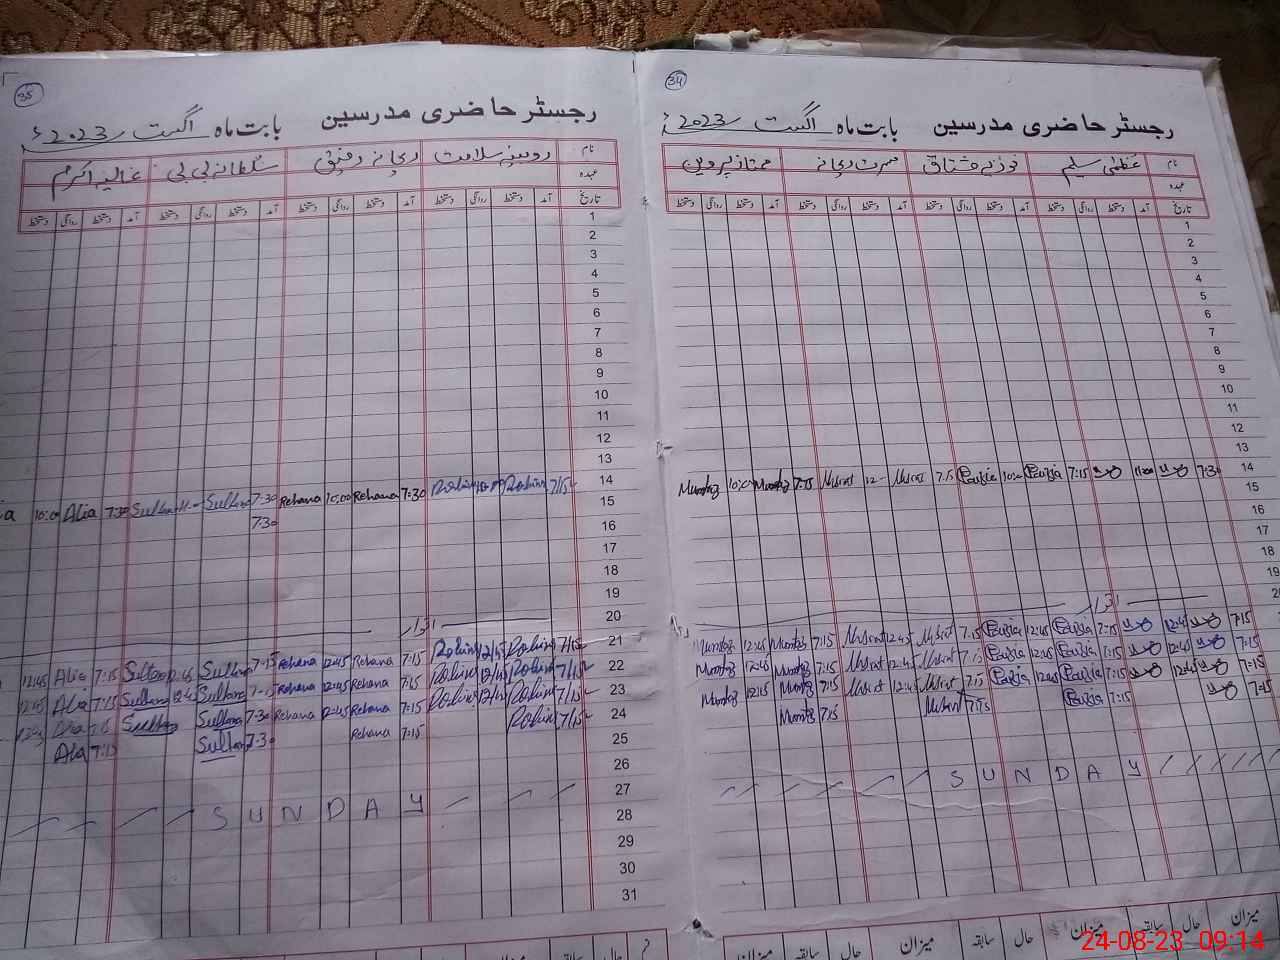 34
رجسٹر حاضری مدرسین بابت ماہ اگست 2023ء
نام عظمیٰ سلیم فوزیہ مشتاق مسرت ریحانہ ممتاز پروین
عہدہ
تاریخ آمد دستخط روانگی دستخط آمد دستخط روانگی دستخط آمد دستخط روانگی دستخط آمد دستخط روانگی دستخط
1
2
3
4
5
6
7
8
9
10
11
12
13
14 7:30 11:00 7:15 Fauzia 10:00 Fauzia 7:15 Musrat 12 Musrat 7:15 Mumtaz 10:00 Mumtaz
15
16
17
18
19
20 اتوار
21 7:15 12:45 7:15 Fauzia 12:45 Fauzia 7:15 Musrat 12:45 Musrat 7:15 Mumtaz 12:45 Mumtaz
7:15 12:45 7:15 Fauzia 12:45 Fauzia 7:15 Musrat 12:45 Musrat 7:15 Mumtaz 12:45 Mumtaz
7:15 12:45 7:15 Fauzia 12:45 Fauzia 7:15 Musrat 12:45 Musrat 7:15 Mumtaz 12:15 Mumtaz
7:15 7:15 Fauzia 7:15 Musrat 7:15 Mumtaz
SUNDAY
میزان حال سابقہ میزان حال سابقہ میزان حال سابقہ میزان
35
رجسٹر حاضری مدرسین بابت ماہ اگست 2023ء
نام روبینہ سلامت ریحانہ رفیق سلطانہ بی بی عالیہ اکرم
عہدہ
تاریخ آمد دستخط روانگی دستخط آمد دستخط روانگی دستخط آمد دستخط روانگی دستخط آمد دستخط روانگی دستخط
1
2
3
4
5
6
7
8
9
10
11
12
13
14 7/15 Robina Robina 7:30 Rehana 10:00 Rehana 7:30 Sultana 11 Sultana 7:30 Alia 10:00
15 7:30
16
17
18
19
20 اتوار
21 7/15 Robina 12/45 Robina 7:15 Rehana 12:45 Rehana 7:15 Sultana 12:45 Sultana 7:15 Alia 12:45
22 7/15 Robina 12/45 Robina 7:15 Rehana 12:45 Rehana 7:15 Sultana 12:45 Sultana 7:15 Alia 12:45
23 7/15 Robina 12/45 Robina 7:15 Rehana 12:45 Rehana 7:30 Sultana Sultana 7:15 Alia
24 7/15 Robina 7:15 Rehana 7:30 Sultana 7:15 Alia
25
26
27 SUNDAY
28
29
30
31
حال سابقہ میزان حال سابقہ میزان
24-08-23 09:14